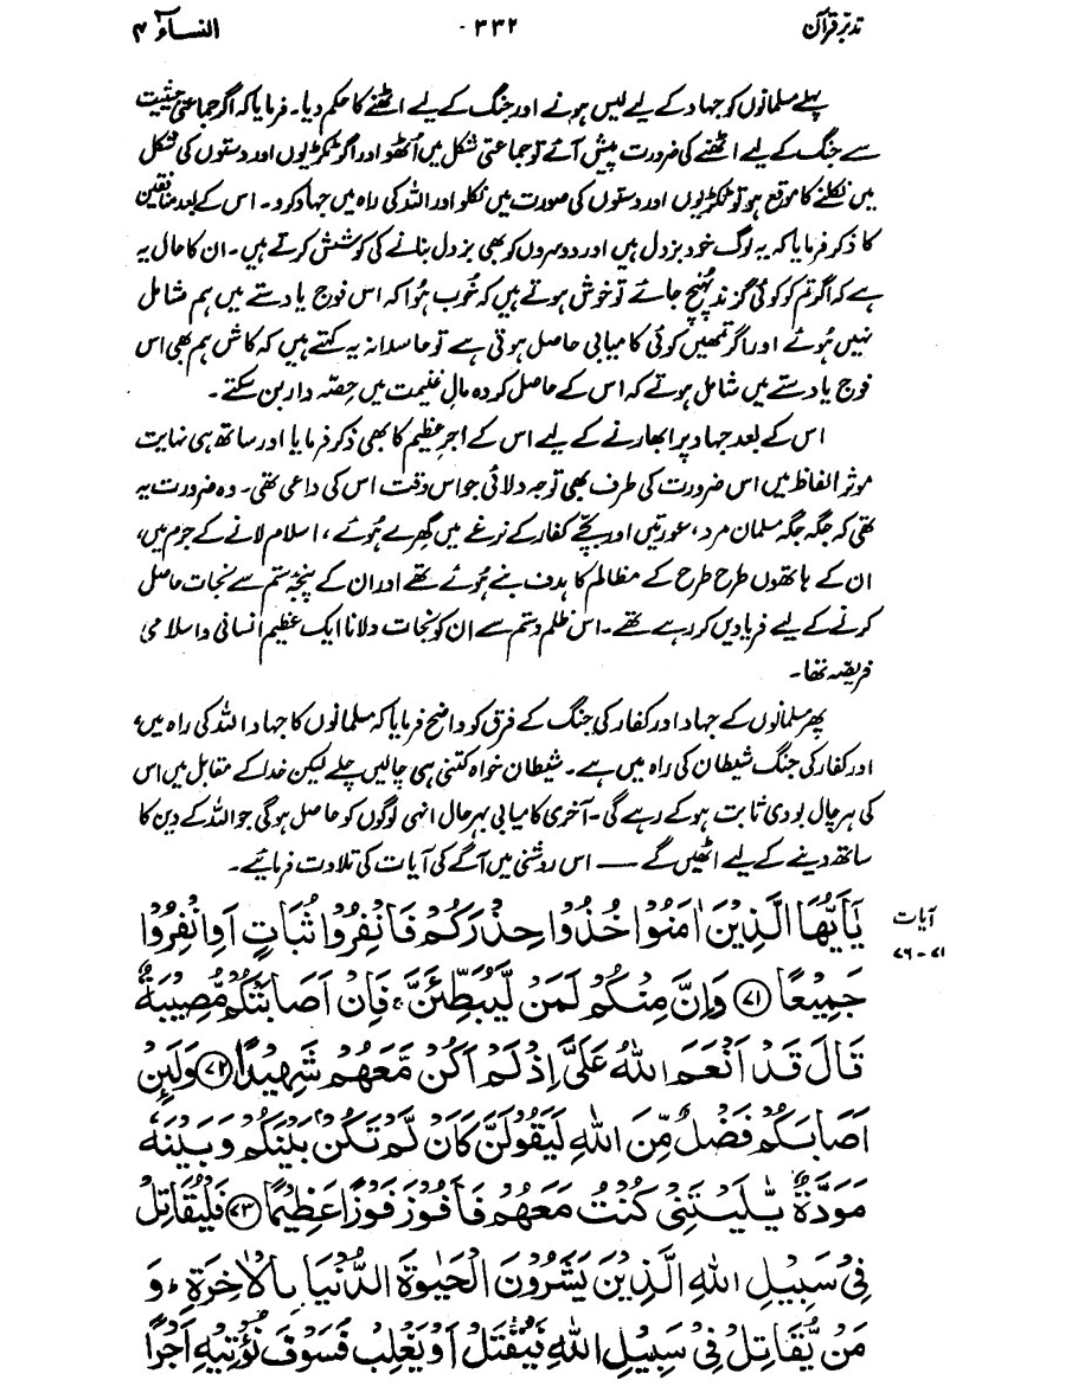 تدبر قرآن ۳۳۲- النساء ۴
پہلے مسلمانوں کو جہاد کے لیے لیس ہونے اور جنگ کے لیے اٹھنے کا حکم دیا۔ فرمایا کہ اگر جماعتی حیثیت
سے جنگ کے لیے اٹھنے کی ضرورت پیش آئے تو جماعتی شکل میں اُٹھو اور اگر ٹکڑیوں اور دستوں کی شکل
میں نکلنے کا موقع ہو تو ٹکڑیوں اور دستوں کی صورت میں نکلو اور اللہ کی راہ میں جہاد کرو۔ اس کے بعد منافقین
کا ذکر فرمایا کہ یہ لوگ خود بزدل ہیں اور دوسروں کو بھی بزدل بنانے کی کوشش کرتے ہیں۔ ان کا حال یہ
ہے کہ اگر تم کو کوئی گزند پہنچ جائے تو خوش ہوتے ہیں کہ خُوب ہُوا کہ اس فوج یا دستے میں ہم شامل
نہیں ہُوئے اور اگر تمھیں کوئی کامیابی حاصل ہوتی ہے تو حاسدانہ یہ کہتے ہیں کہ کاش ہم بھی اس
فوج یا دستے میں شامل ہوتے کہ اس کے حاصل کردہ مالِ غنیمت میں حِصّہ دار بن سکتے۔
اس کے بعد جہاد پر ابھارنے کے لیے اس کے اجرِ عظیم کا بھی ذکر فرمایا اور ساتھ ہی نہایت
موثر الفاظ میں اس ضرورت کی طرف بھی توجہ دلائی جو اس وقت اس کی داعی تھی۔ وہ ضرورت یہ
تھی کہ جگہ جگہ مسلمان مرد، عورتیں اور بچّے کفار کے نرغے میں گھِرے ہُوئے، اسلام لانے کے جرم میں،
ان کے ہاتھوں طرح طرح کے مظالم کا ہدف بنے ہُوئے تھے اور ان کے پنجۂ ستم سے نجات حاصل
کرنے کے لیے فریادیں کر رہے تھے۔ اس ظلم و ستم سے ان کو نجات دلانا ایک عظیم انسانی و اسلامی
فریضہ تھا۔
پھر مسلمانوں کے جہاد اور کفار کی جنگ کے فرق کو واضح فرمایا کہ مسلمانوں کا جہاد اللہ کی راہ میں،
اور کفار کی جنگ شیطان کی راہ میں ہے۔ شیطان خواہ کتنی ہی چالیں چلے لیکن خدا کے مقابل میں اس
کی ہر چال بودی ثابت ہو کے رہے گی۔ آخری کامیابی بہرحال انہی لوگوں کو حاصل ہوگی جو اللہ کے دین کا
ساتھ دینے کے لیے اٹھیں گے — اس روشنی میں آگے کی آیات کی تلاوت فرمائیے۔
آیات
۷۱-۷۶
يٰٓاَيُّهَا الَّذِيْنَ اٰمَنُوْا خُذُوْا حِذْرَكُمْ فَانْفِرُوْا ثُبَاتٍ اَوِ انْفِرُوْا
جَمِيْعًا ۷۱ وَاِنَّ مِنْكُمْ لَمَنْ لَّيُبَطِّئَنَّ ۚ فَاِنْ اَصَابَتْكُمْ مُّصِيْبَةٌ
قَالَ قَدْ اَنْعَمَ اللّٰهُ عَلَىَّ اِذْ لَمْ اَكُنْ مَّعَهُمْ شَهِيْدًا ۷۲ وَلَئِنْ
اَصَابَكُمْ فَضْلٌ مِّنَ اللّٰهِ لَيَقُوْلَنَّ كَاَنْ لَّمْ تَكُنْۢ بَيْنَكُمْ وَبَيْنَهٗ
مَوَدَّةٌ يّٰلَيْتَنِيْ كُنْتُ مَعَهُمْ فَاَفُوْزَ فَوْزًا عَظِيْمًا ۷۳ فَلْيُقَاتِلْ
فِيْ سَبِيْلِ اللّٰهِ الَّذِيْنَ يَشْرُوْنَ الْحَيٰوةَ الدُّنْيَا بِالْاٰخِرَةِ ۚ وَ
مَنْ يُّقَاتِلْ فِيْ سَبِيْلِ اللّٰهِ فَيُقْتَلْ اَوْ يَغْلِبْ فَسَوْفَ نُؤْتِيْهِ اَجْرًا